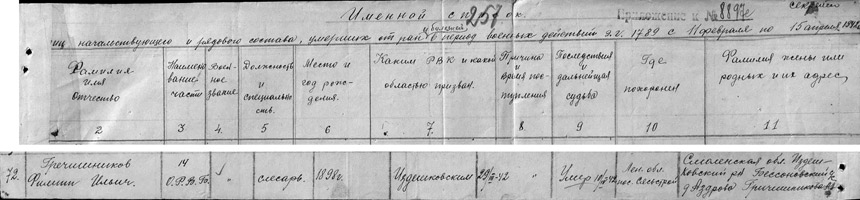 Именной список.
257
Приложение к № 8897с
Секретно
лиц начальствующего и рядового состава, умерших от ран и болезней в период военных действий э.г. 1789 с 11 февраля по 15 апреля
Фамилия имя отчество
Наименование части
Воен-ное звание
Должность и специальность.
Место и год рождения.
Каким РВК и какой областью призван.
Причина и время поступления
Последствия и дальнейшая судьба
Где похоронен
Фамилия жены или родных и их адрес,
2 3 4. 5 6 7. 8. 9 10 11
72. Гречишников Филипп Ильич.
14 О.Р.В.Б.
"
слесарь.
1898г.
Издешковским
29/III-42
"
Умер
Лен. обл. пос. Сельстрой
Смоленская обл. Издешковский р-н Бессоновский д. Аздрово Гричишникова